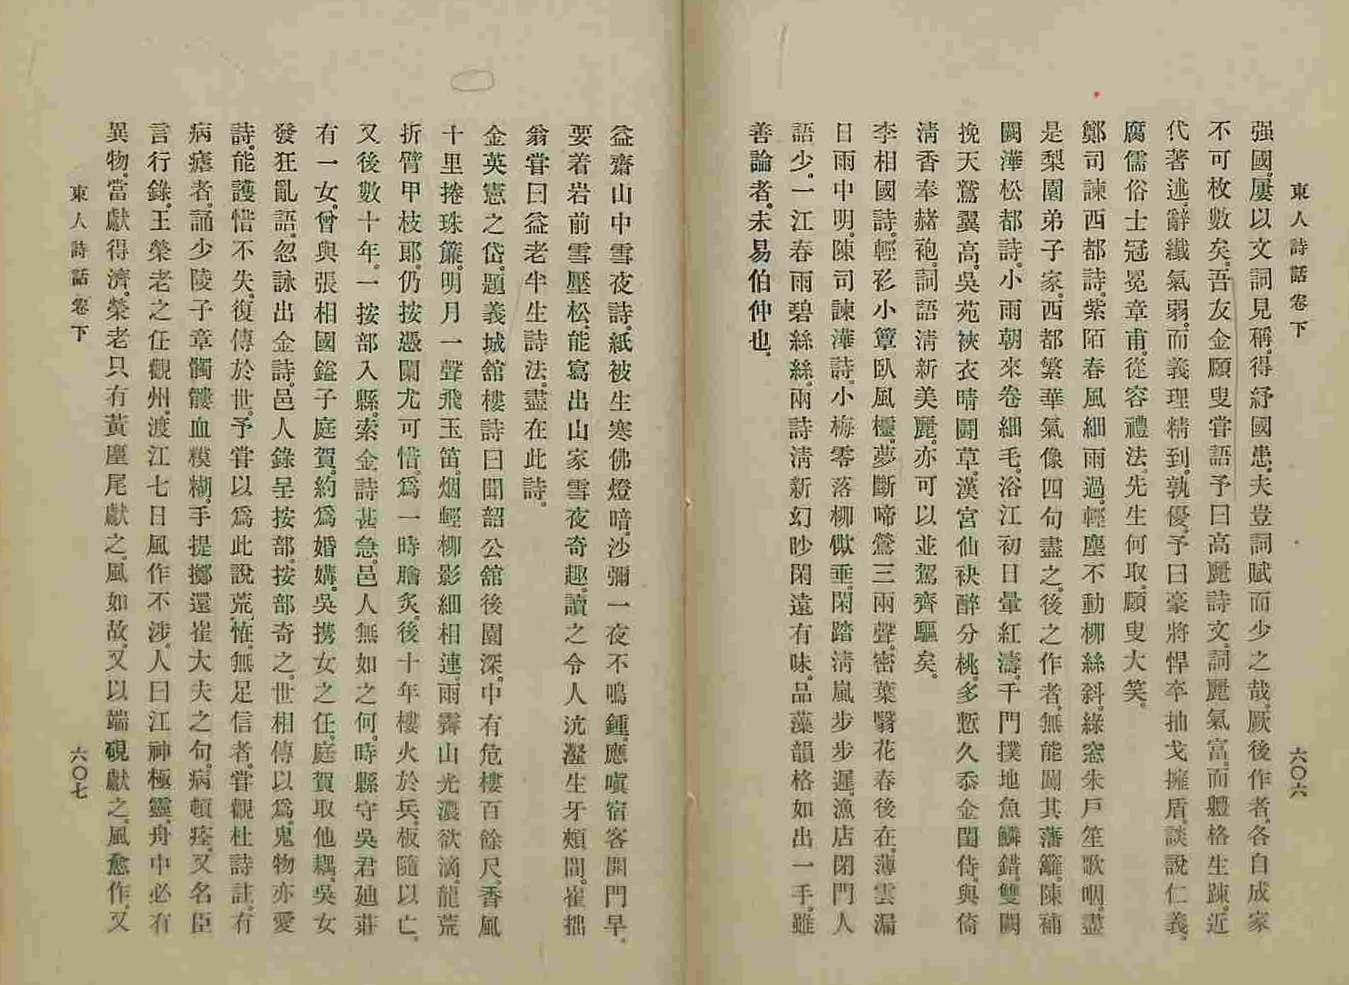 東人詩話卷下
六〇六
强國。屢以文詞見稱。得紓國患。夫豈詞賦而少之哉。厥後作者。各自成家
不可枚數矣。吾友金頤叟嘗語予曰。高麗詩文。詞麗氣富。而軆格生踈。近
代著述。辭纖氣弱。而義理精到。孰優。予曰。豪將悍卒。抽戈擁盾。談說仁義。
腐儒俗士。冠冕章甫。從容禮法。先生何取。頤叟大笑。
鄭司諫西都詩。紫陌春風細雨過。輕塵不動柳絲斜。綠窓朱戶笙歌咽。盡
是梨園弟子家。西都繁華氣像。四句盡之。後之作者。無能闖其藩籬。陳補
闕澕松都詩。小雨朝來卷細毛。浴江初日暈紅濤。千門撲地魚鱗錯。雙闕
挽天鷲翼高。吳苑裌衣晴鬪草。漢宮仙袂醉分桃。多慙久忝金閨侍。與倚
淸香奉赭袍。詞語淸新美麗。亦可以並駕齊驅矣。
李相國詩。輕衫小簟臥風欞。夢斷啼鶯三兩聲。密葉翳花春後在。薄雲漏
日雨中明。陳司諫澕詩。小梅零落柳僛垂。閑踏淸嵐步步遲。漁店閉門人
語少。一江春雨碧絲絲。兩詩淸新幻眇。閑遠有味。品藻韻格。如出一手。雖
善論者。未易伯仲也。
益齋山中雪夜詩。紙被生寒佛燈暗。沙彌一夜不鳴鍾。應嗔宿客開門早。
要着岩前雪壓松。能寫出山家雪夜奇趣。讀之令人沆瀣生牙頰間。崔拙
翁嘗曰。益老半生詩法。盡在此詩。
金英憲之岱。題義城舘樓詩曰。聞韶公舘後園深。中有危樓百餘尺。香風
十里捲珠簾。明月一聲飛玉笛。烟輕柳影細相連。雨霽山光濃欲滴。龍荒
折臂甲枝郞。仍按憑闌尤可惜。爲一時膾炙。後十年。樓火於兵。板隨以亡。
又後數十年。一按部入縣。索金詩甚急。邑人無如之何。時縣守吳君廸莊
有一女。曾與張相國鎰子庭賀。約爲婚媾。吳携女之任。庭賀取他耦。吳女
發狂亂語。忽詠出金詩。邑人錄呈按部。按部奇之。世相傳以爲。鬼物亦愛
詩。能護惜不失。復傳於世。予嘗以爲此說荒恠。無足信者。嘗觀杜詩註。有
病瘧者。誦少陵子章髑髏血糢糊。手提擲還崔大夫之句。病頓痊。又名臣
言行錄。王榮老之任觀州。渡江七日風作不涉。人曰江神極靈。舟中必有
異物。當獻得濟。榮老只有黃麈尾獻之。風如故。又以端硯獻之。風愈作。又
東人詩話卷下
六〇七